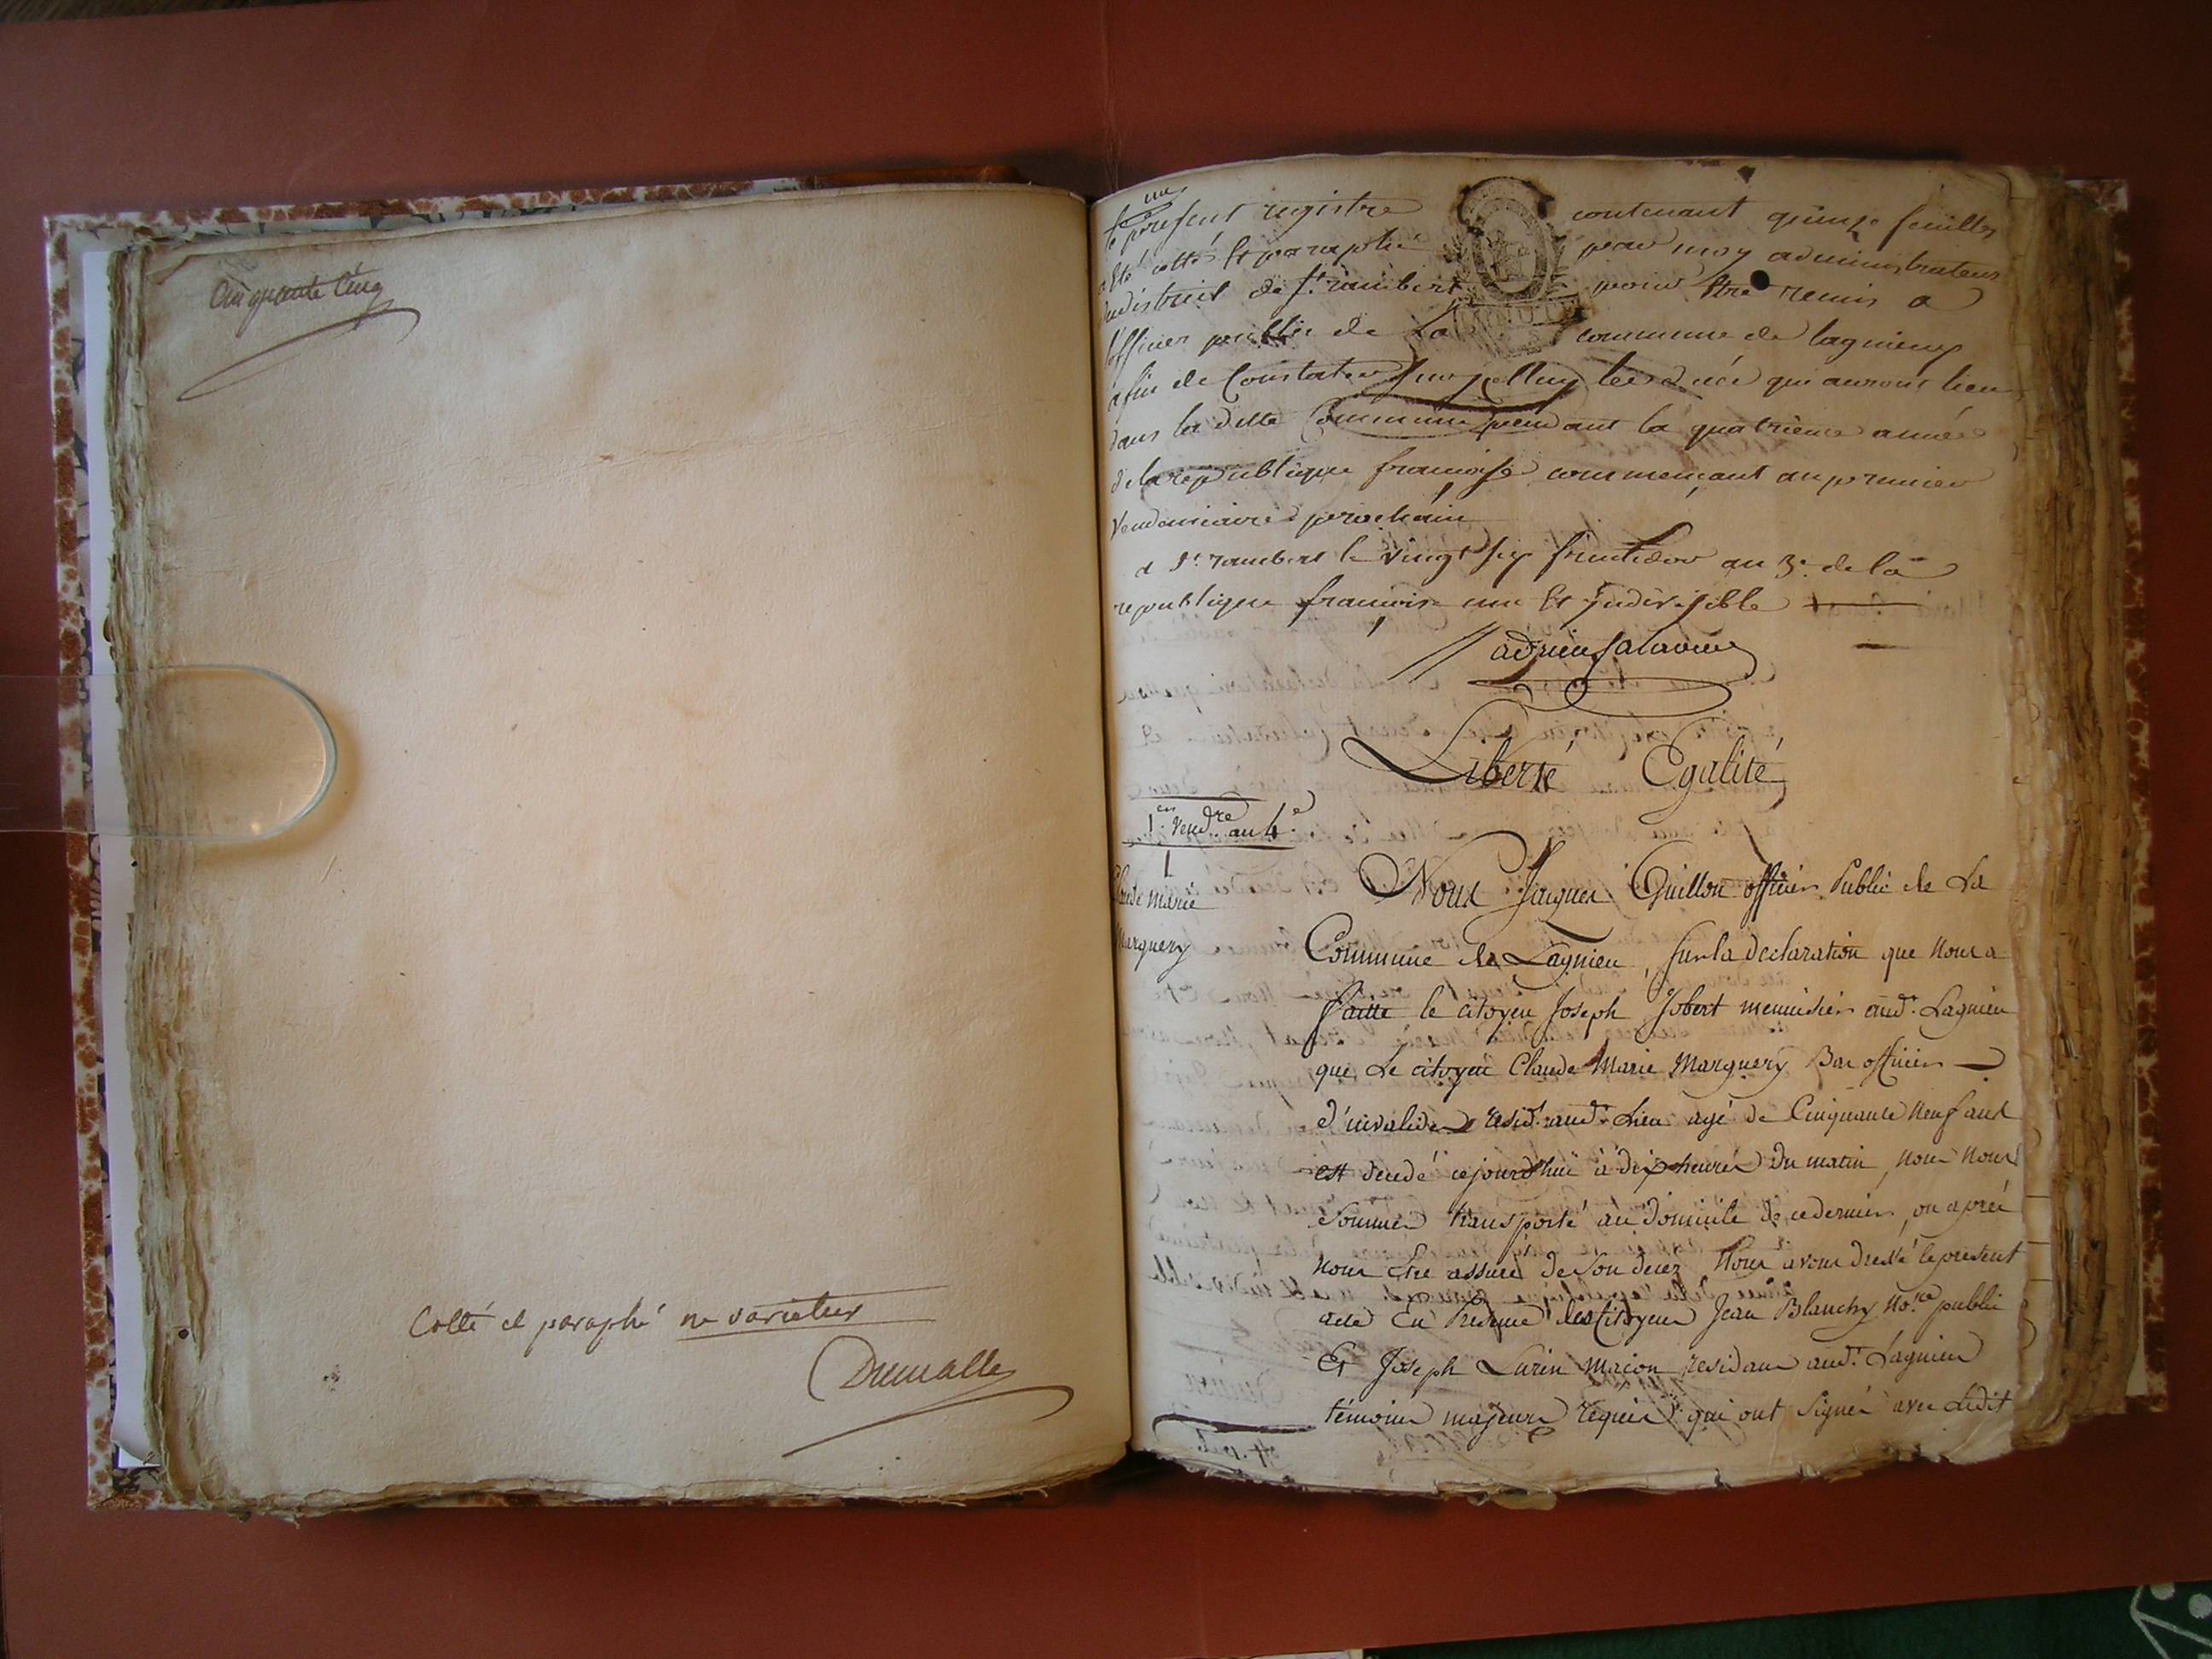 Cinquante Cinq
Cotté et paraphé ne varietur
Dumalle
une
le present registre contenant quinze feuilles
a été cotté et paraphé par moy administrateur
du district de St. rambert pour être remis a
l'officier public de La commune de lagnieu
afin de Constater les décé qui auront lieu
dans la ditte Commune pendant la quatrieme année
de la republique francoise commençant au premier
Vendemiaire prochain
a St. rambert le vingt six fructidor an 3e. de la
republique francoise une et Indivisible
adrien Salavin
Liberté Egalité
1er. Vendre. an 4e.
1
Claude Marie
Marguery
Nous Jacques Quillon officier Public de La
Commune de Lagnieu, sur la declaration que nous a
faitte le citoyen Joseph Jobert menuisier aud. Lagnieu
que Le citoyen Claude Marie Marguery Bas officier
d'invalides resid. aud. Lieu agé de Cinquante neuf ans
est decedé cejourdhui à dix heures du matin, nous nous
sommes transporté au domicile de ce dernier, ou après
nous être assuré de son decez Nous avons dressé le present
acte En Presence des Citoyens Jean Blanchy No.re public
Et Joseph Lurin Maçon residans aud. Lagnieu
témoins majeurs requis qui ont signés avec Ledit